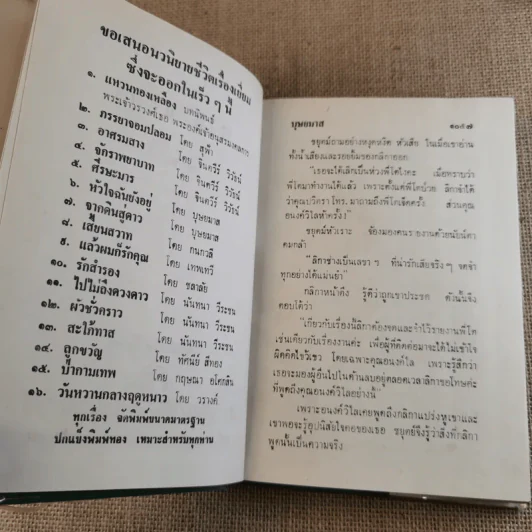 ขอเสนอนวนิยายชีวิตเรื่องเยี่ยม
ซึ่งจะออกในเร็ว ๆ นี้
๑. แหวนทองเหลือง บทนิพนธ์
พระเจ้าวรวงศ์เธอ พระองค์เจ้าอนุสรมงคลการ
๒. ภรรยาจอมปลอม โดย สุฟ้า
๓. อาศรมสาง โดย จินตวีร์ วิวัธน์
๔. จักราพยาบาท โดย จินตวีร์ วิวัธน์
๕. ศีรษะมาร โดย จินตวีร์ วิวัธน์
๖. หัวใจฉันยังอยู่ โดย บุษยมาส
๗. จากดินสู่ดาว โดย บุษยมาส
๘. เสี้ยนสวาท โดย กนกวลี
๙. แล้วผมก็รักคุณ โดย เทพเทวี
๑๐. รักสำรอง โดย ชลาลัย
๑๑. ไปไม่ถึงดวงดาว โดย นันทนา วีระชน
๑๒. ผัวชั่วคราว โดย นันทนา วีระชน
๑๓. สะใภ้ทาส โดย นันทนา วีระชน
๑๔. ลูกขวัญ โดย ทัศนีย์ สีทอง
๑๕. ป่ากามเทพ โดย กฤษณา อโศกสิน
๑๖. วันหวานกลางฤดูหนาว โดย วรางค์
ทุกเรื่อง จัดพิมพ์ขนาดมาตรฐาน
ปกแข็งพิมพ์ทอง เหมาะสำหรับทุกท่าน
บุษยมาส ๑๐๕๗
ชยุตม์ถามอย่างหงุดหงิด หัวเสีย ในเมื่อเขาอ่าน
ทั้งน้ำเสียงและรอยยิ้มของกลิกาออก
"เธอจะได้เลิกเป็นห่วงพี่ไตไงคะ เมื่อทราบว่า
พี่ไตมาทำงานได้แล้ว เพราะตั้งแต่พี่ไตป่วย ลิกาจำได้
ว่าคุณปวิตราโทร. มาถามถึงพี่ไตเจ็ดครั้ง ส่วนคุณ
อนงค์วิไลห้าครั้ง!"
ชยุตม์หัวเราะ จ้องมองคนรายงานด้วยนัยน์ตา
คมกล้า
"ลิกาช่างเป็นเลขา ฯ ที่น่ารักเสียจริงๆ จดจำ
ทุกอย่างได้แม่นยำ"
กลิกาหน้าตึง รู้ดีว่าถูกเขาประชด ดังนั้นจึง
ตอบโต้ว่า
"เกี่ยวกับเรื่องนี้ลิกาต้องจดและจำไว้รายงานพี่ไต
เช่นเดียวกับเรื่องงานค่ะ เพื่อผู้ที่ติดต่อมาจะได้ไม่เข้าใจ
ผิดคิดไขว้เขว โดยเฉพาะคุณอนงค์วิไล เพราะรู้สึกว่า
เธอจะมองผู้อื่นไปในด้านลบอยู่ตลอดเวลาลิกาขอโทษค่ะ
ที่พูดถึงคุณอนงค์วิไลอย่างนี้
เพราะอนงค์วิไลเคยพูดถึงกลิกาแปร่งหูเขาและ
เขาพอจะรู้อุปนิสัยใจคอของเธอ ชยุตม์จึงรู้ว่าสิ่งที่กลิกา
พูดนั้นเป็นความจริง